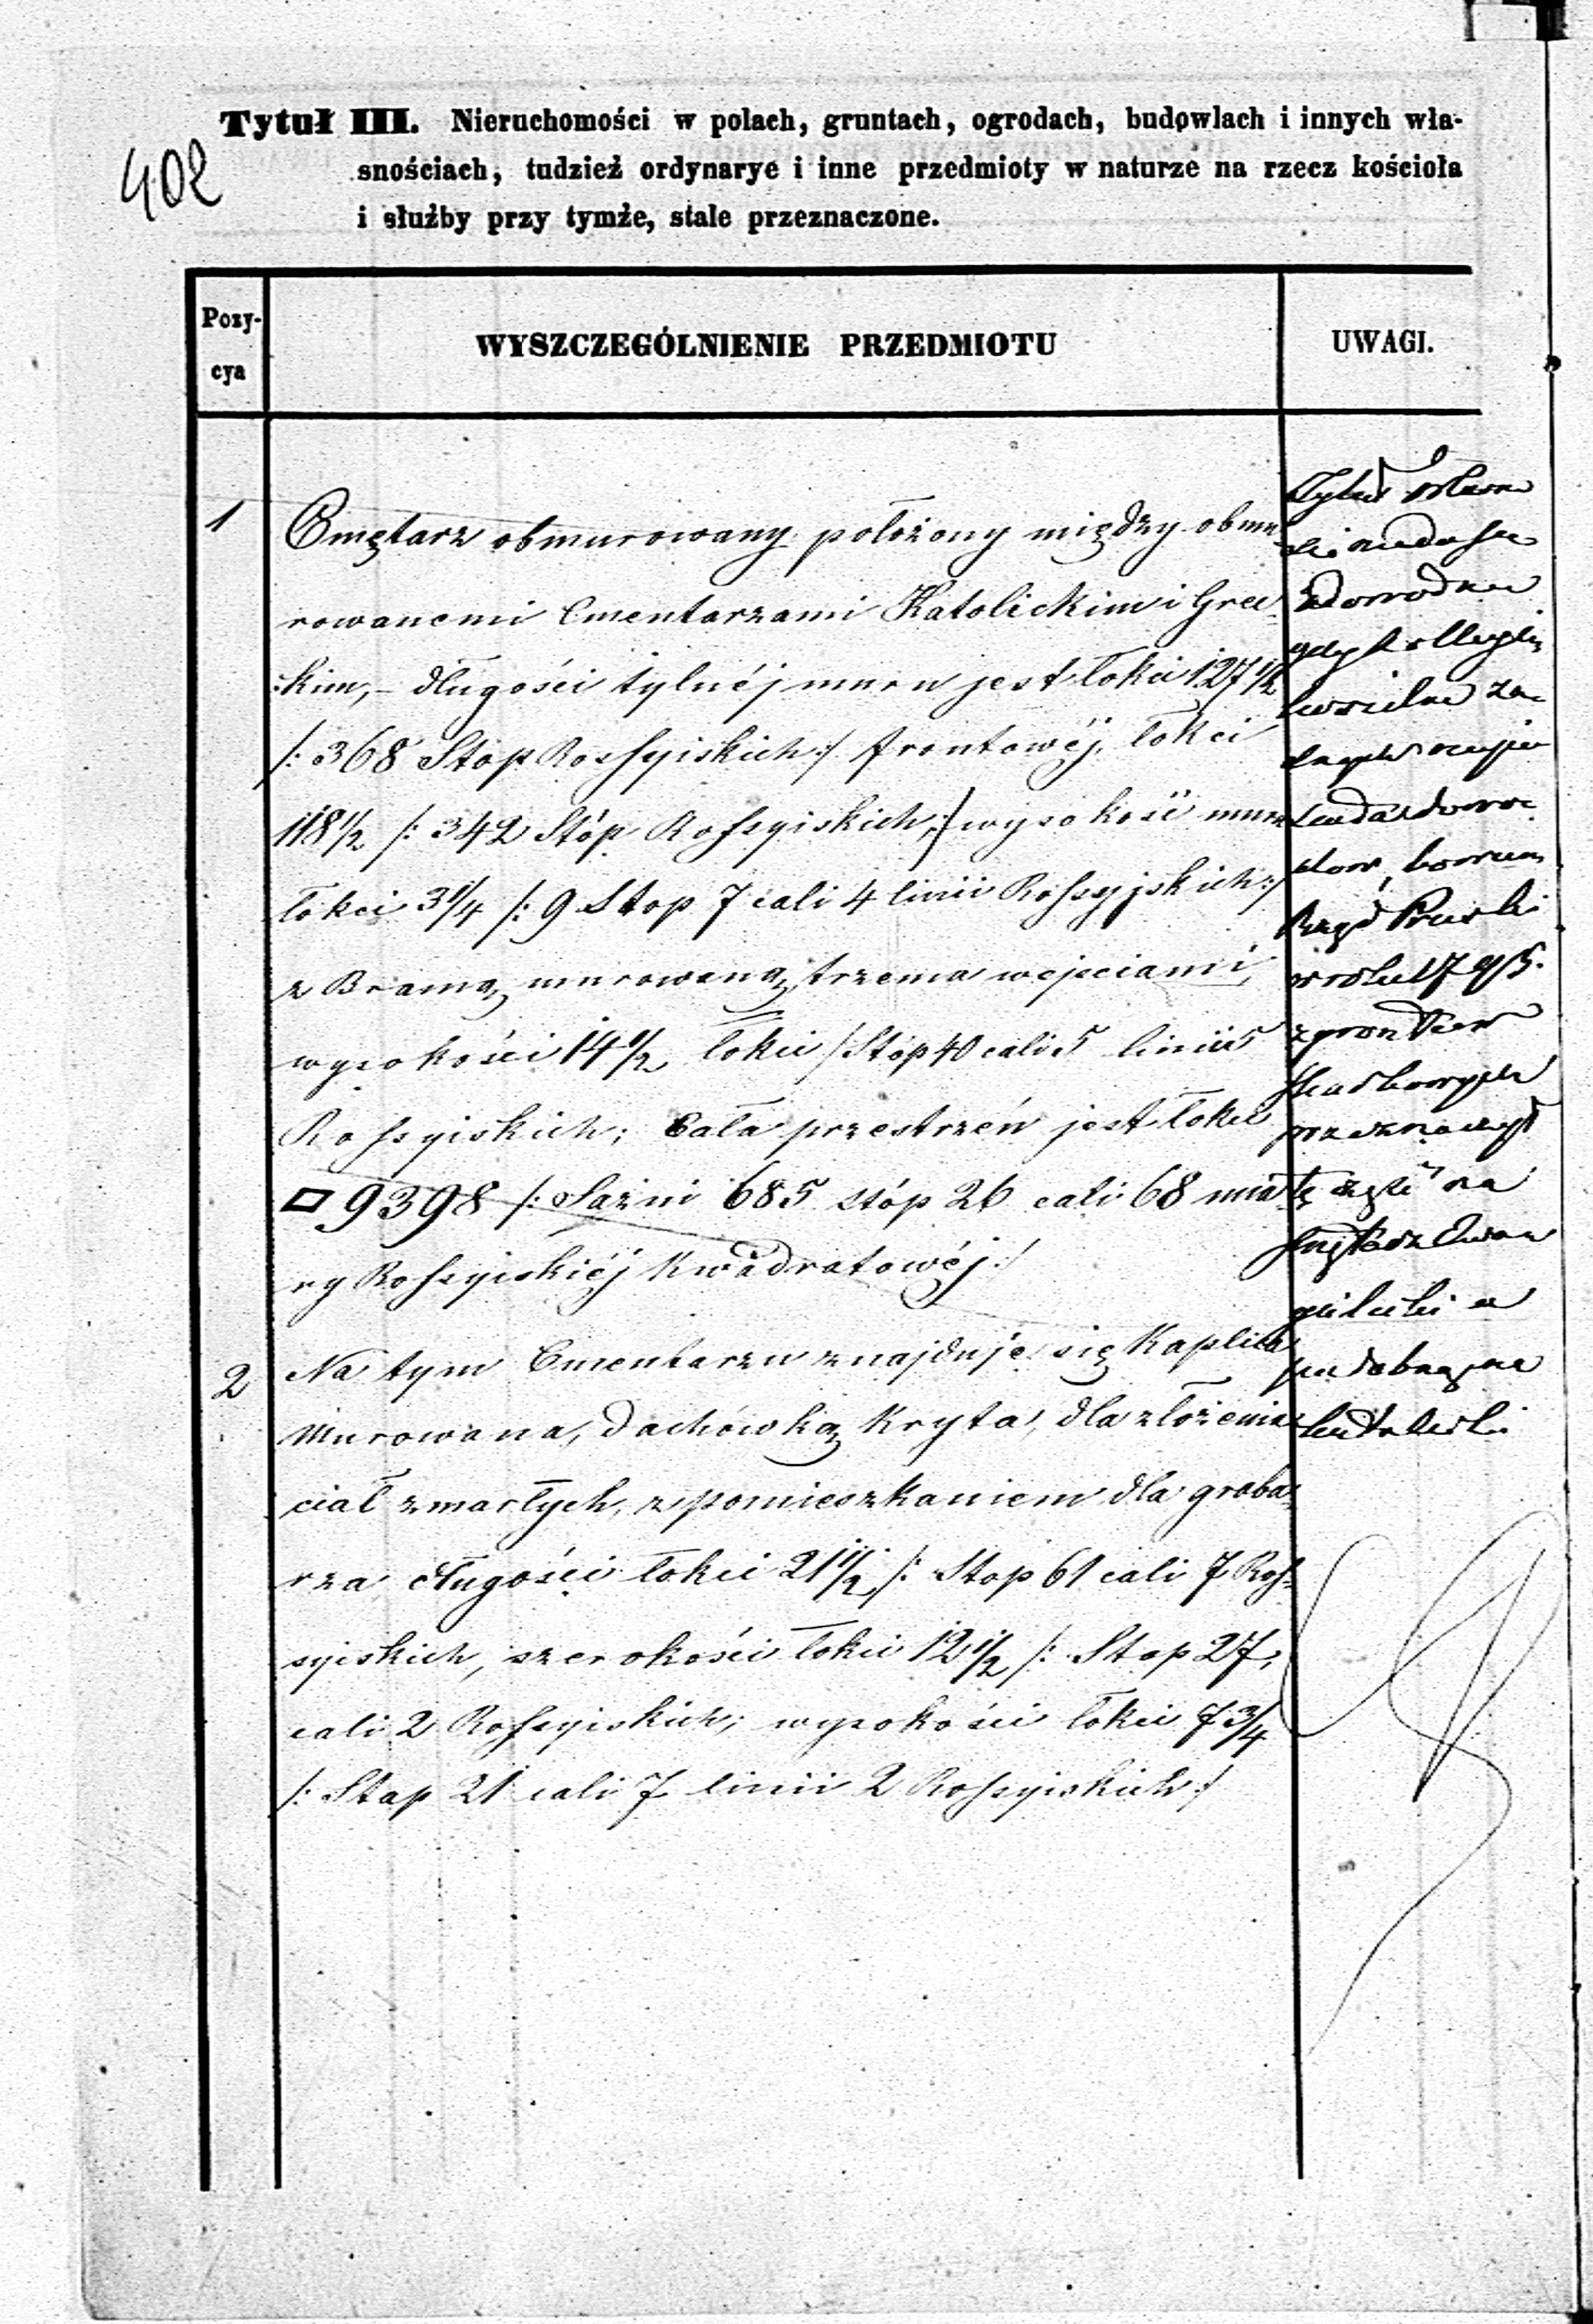 402
Tytuł III. Nieruchomości w polach, gruntach, ogrodach, budowlach i innych wła-
snościach, tudzież ordynarye i inne przedmioty w naturze na rzecz kościoła
i służby przy tymże, stale przeznaczone.
Pozy-
cya
WYSZCZEGÓLNIENIE PRZEDMIOTU
UWAGI.
1
Cmętarz obmurowany położony między obmu-
rowanemi Cmentarzami Katolickim i Grec-
kim, – długości tylnéj muru jest łokci 127 1/2
/: 368 Stóp Rossyiskich :/ frontowéj, łokci
118 1/2 /: 342 Stóp Rossyiskich, :/ wysokość muru
łokci 3 1/4 /: 9 Stop 7 cali 4 linii Rossyjskich :/
z Bramą murowaną, trzema wejsciami,
wysokości 14 1/2 łokci / Stóp 40 cali 5 linii 5
Rossyiskich; Cała przestrzéń jest łokci
□ 9398 /: Sażni 685 stóp 26 cali 68 mia-
ry Rossyiskiéj Kwadratowéj :/
2
Na tym Cmentarzu znajduje się Kaplica
Murowana, Dachówką Kryta, dla złożenia
ciał zmarłych, z pomieszkaniem dla graba-
rza długości łokci 21 1/2 /: Stop 61 cali 7 Ros-
syiskich, szerokości łokci 12 1/2 /: Stop 27,
cali 2 Rossyiskich; wysokości łokci 7 3/4
/: Stop 21 cali 7 linii 2 Rossyiskich :/
Tytuł
gdy Kollegi
Rząd Pruski
w roku 1795.
z gruntów
Skarbowych
przeznaczył
tę część na
Cmętarz Ewan
gielicki a
podobnąż na
katolicki